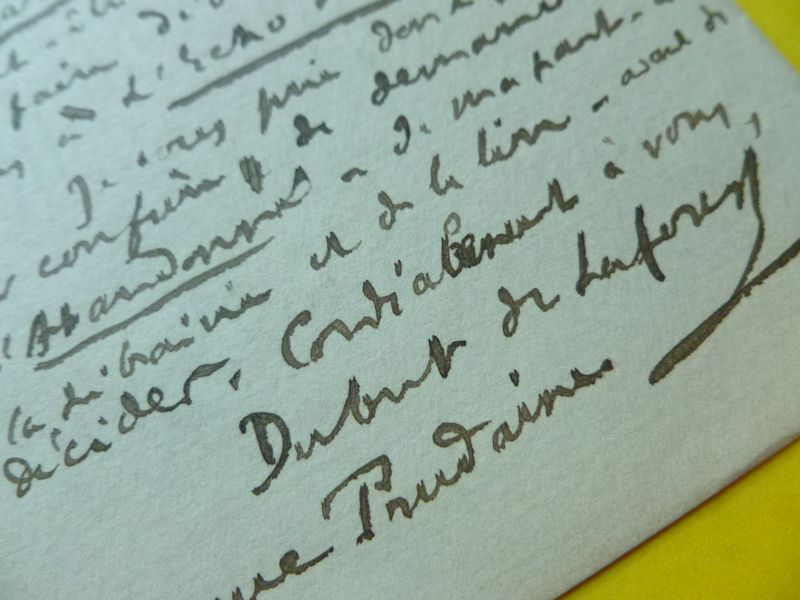 faire d'
à L'Echo
Je vous prie donc
confrère, de demander
l'Abandonné – de ma part –
la librairie et de le lire – avant de
décider. Cordialement à vous,
Dubut de Laforest
Trudaine